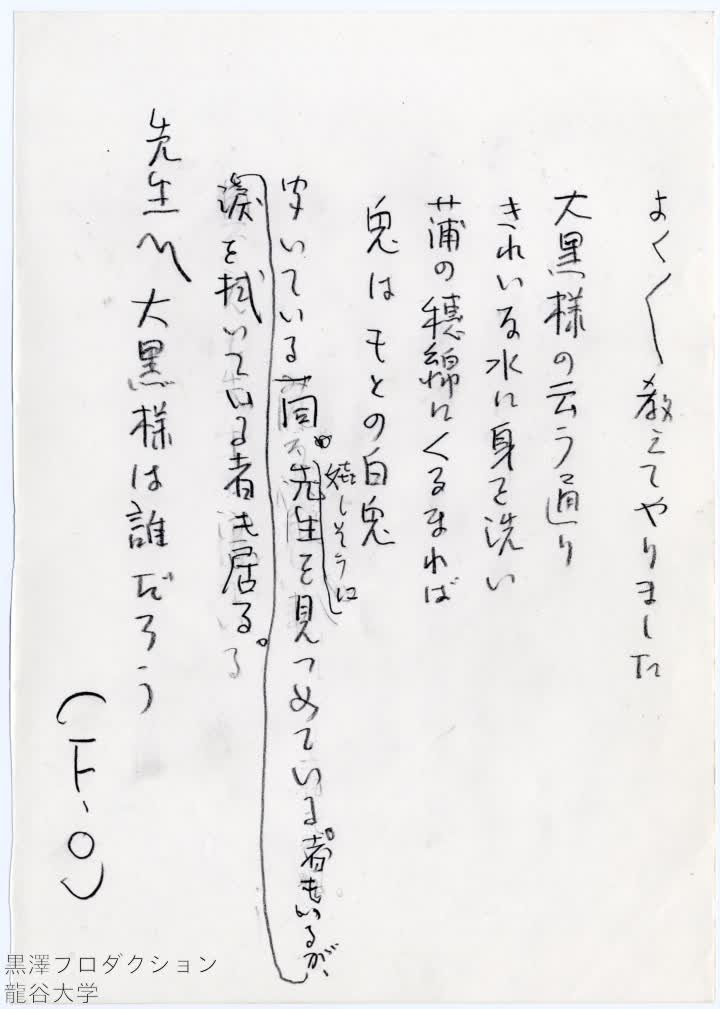 よく〱教えてやりました
大黒様の云う通り
きれいな水に身を洗い
蒲の穂綿にくるまれば
兎はもとの白兎
聞いている一同。
嬉しそうに
先生を見つめている者もいるが、
涙を拭いている者も居る。
先生〽大黒様は誰だろう
(F・O)
黒澤プロダクション
龍谷大学